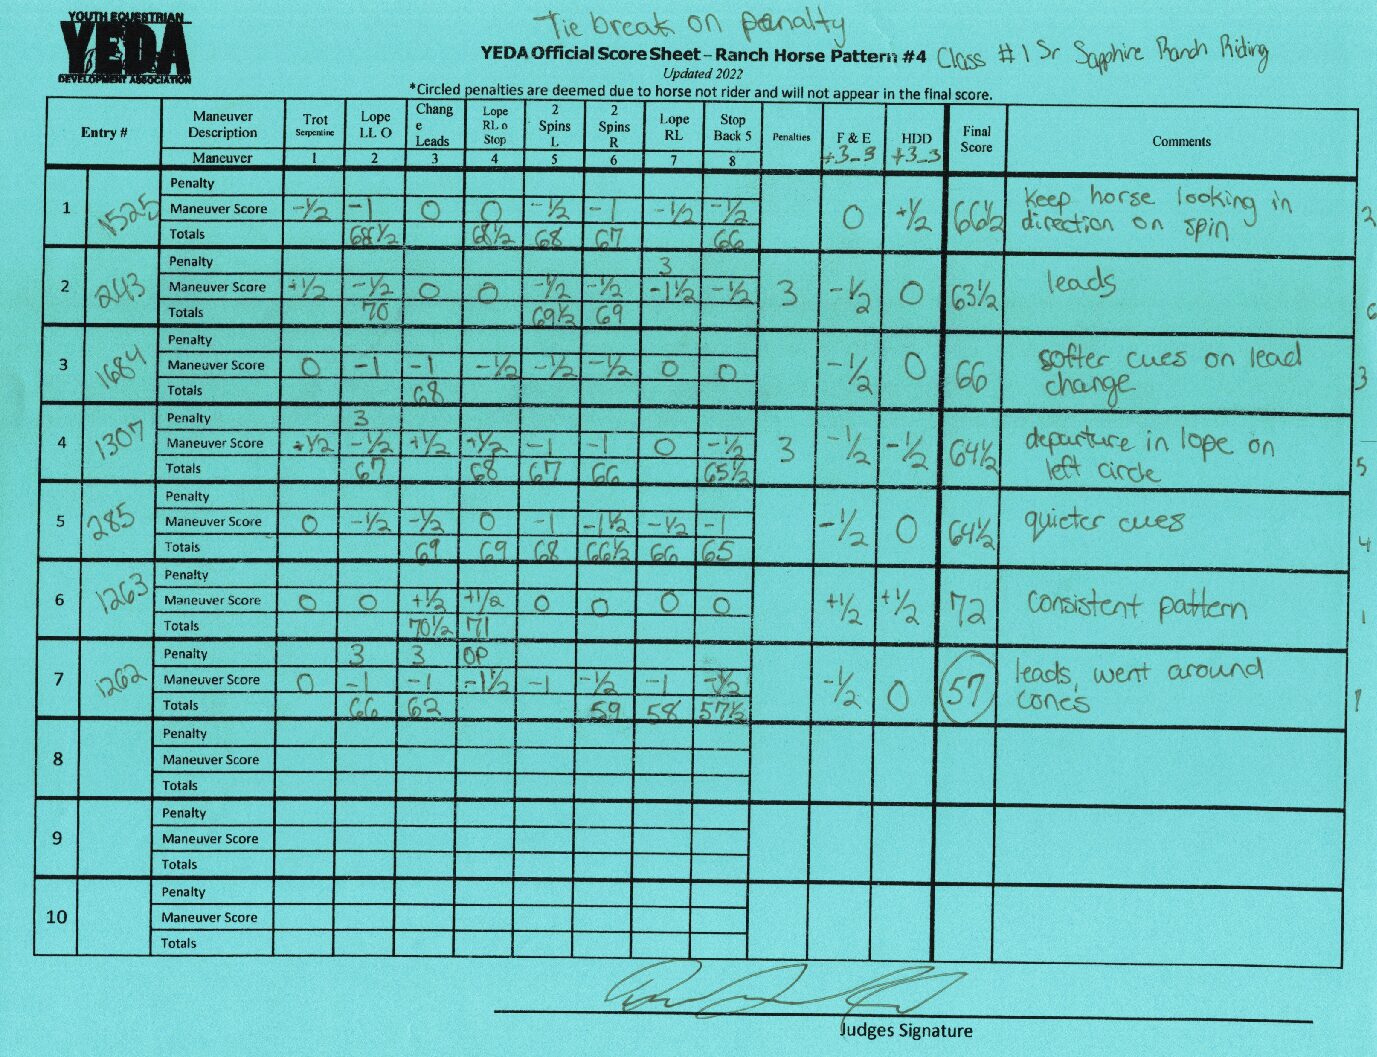 YOUTH EQUESTRIAN
YEDA
DEVELOPMENT ASSOCIATION
Tie break on penalty
YEDA Official Score Sheet – Ranch Horse Pattern #4 Class #1 Sr Sapphire Ranch Riding
Updated 2022
*Circled penalties are deemed due to horse not rider and will not appear in the final score.
Entry # Maneuver Description Trot Serpentine Lope LL O Chang e Leads Lope RL o Stop 2 Spins L 2 Spins R Lope RL Stop Back 5 Penalties F & E +3-3 HDD +3-3 Final Score Comments
Maneuver 1 2 3 4 5 6 7 8
1 1525 Penalty
Maneuver Score -1/2 -1 0 0 -1/2 -1 -1/2 -1/2 0 +1/2 66 1/2 keep horse looking in direction on spin 2
Totals 68 1/2 68 1/2 68 67 66
2 243 Penalty 3
Maneuver Score +1/2 -1/2 0 0 -1/2 -1/2 -1 1/2 -1/2 3 -1/2 0 63 1/2 leads 6
Totals 70 69 1/2 69
3 1684 Penalty
Maneuver Score 0 -1 -1 -1/2 -1/2 -1/2 0 0 -1/2 0 66 softer cues on lead change 3
Totals 68
4 1307 Penalty 3
Maneuver Score +1/2 -1/2 +1/2 +1/2 -1 -1 0 -1/2 3 -1/2 -1/2 64 1/2 departure in lope on left circle 5
Totals 67 68 67 66 65 1/2
5 285 Penalty
Maneuver Score 0 -1/2 -1/2 0 -1 -1 1/2 -1/2 -1 -1/2 0 64 1/2 quieter cues 4
Totals 69 69 68 66 1/2 66 65
6 1263 Penalty
Maneuver Score 0 0 +1/2 +1/2 0 0 0 0 +1/2 +1/2 72 consistent pattern 1
Totals 70 1/2 71
7 1262 Penalty 3 3 OP
Maneuver Score 0 -1 -1 -1 1/2 -1 -1/2 -1 -1/2 -1/2 0 57 leads, went around cones 7
Totals 66 62 59 58 57 1/2
8 Penalty
Maneuver Score
Totals
9 Penalty
Maneuver Score
Totals
10 Penalty
Maneuver Score
Totals
Judges Signature